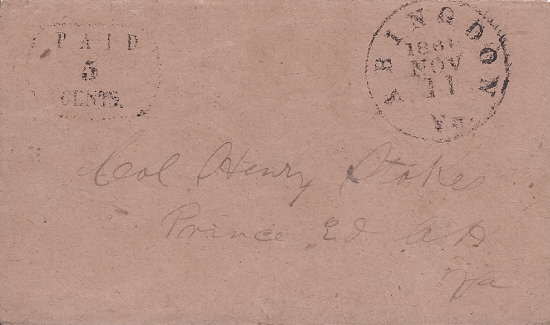 PAID
5
CENTS.
ABINGDON VA
1861
NOV
11
Col Henry Stokes
Prince Ed C H
Va